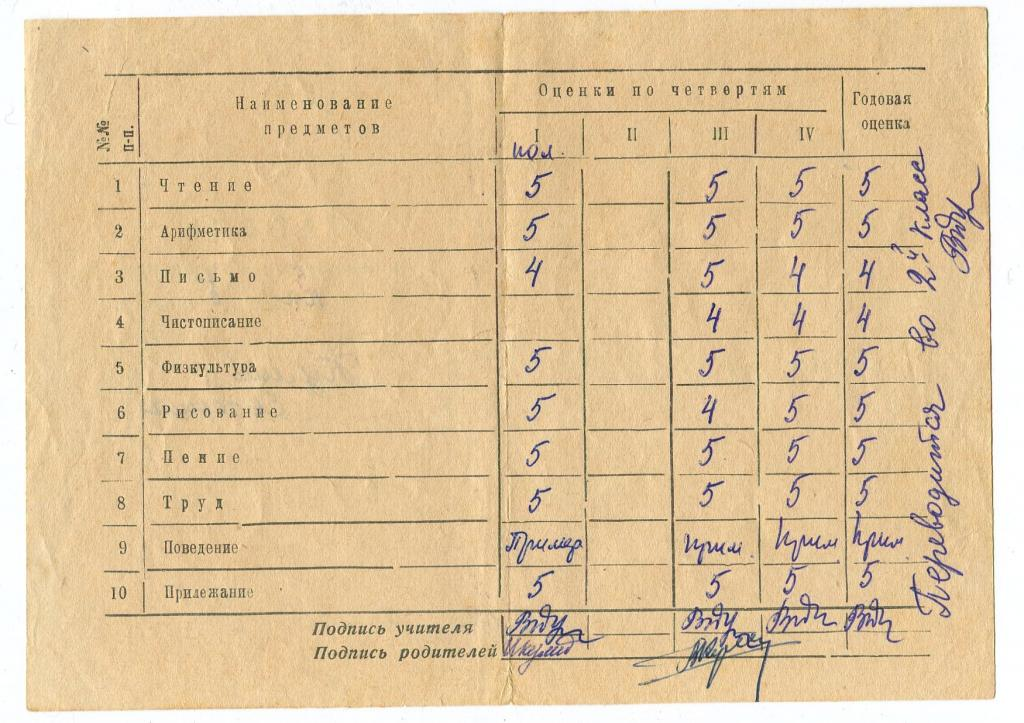 №№ п-п. Наименование предметов Оценки по четвертям Годовая оценка
I II III IV
пол.
1 Чтение 5 5 5 5
2 Арифметика 5 5 5 5
3 Письмо 4 5 4 4
4 Чистописание 4 4 4
5 Физкультура 5 5 5 5
6 Рисование 5 4 5 5
7 Пение 5 5 5 5
8 Труд 5 5 5 5
9 Поведение прим. прим прим.
10 Прилежание 5 5 5 5
Подпись учителя
Подпись родителей
Переводится во 2й класс